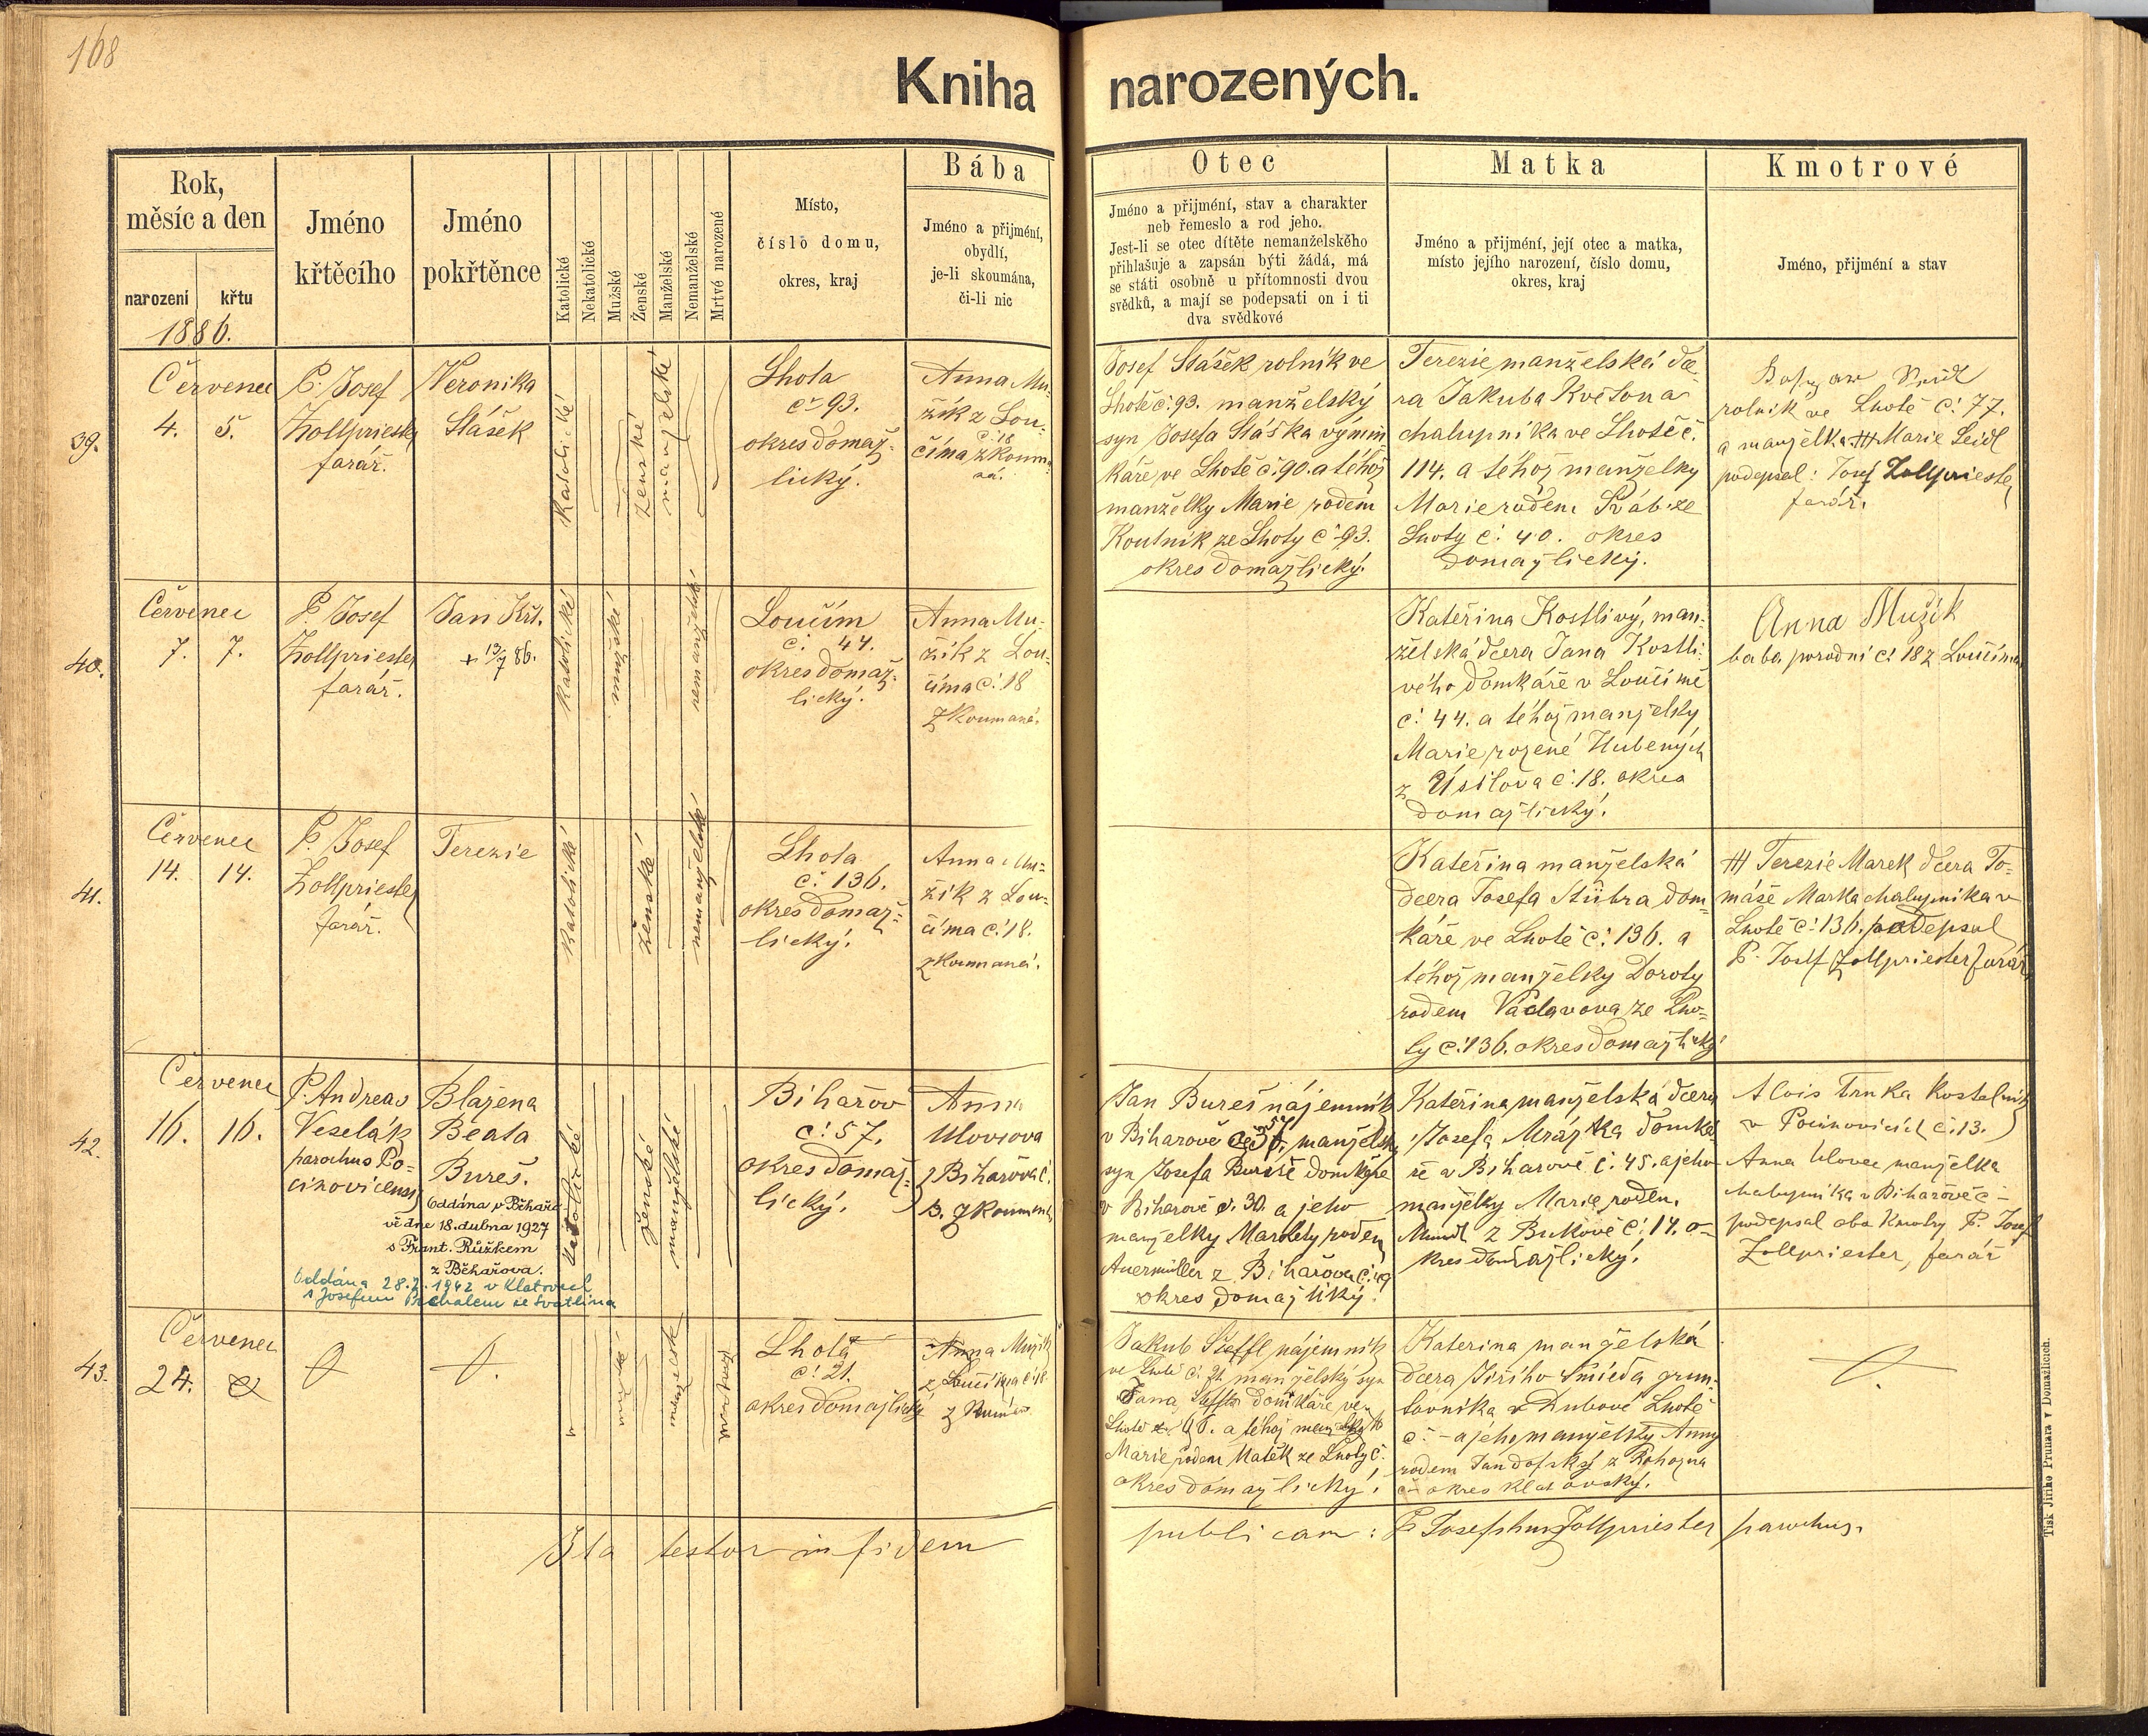 168
Kniha narozených.
Rok,
měsíc a den
narození
křtu
1886.
Jméno
křtěcího
Jméno
pokřtěnce
Katolické
Nekatolické
Mužské
Ženské
Manželské
Nemanželské
Mrtvě narozené
Místo,
číslo domu,
okres, kraj
Bába
Jméno a přijmení,
obydlí,
je-li skoumána,
či-li nic
Otec
Jméno a přijmení, stav a charakter
neb řemeslo a rod jeho.
Jest-li se otec dítěte nemanželského
přihlašuje a zapsán býti žádá, má
se státi osobně u přítomnosti dvou
svědků, a mají se podepsati on i ti
dva svědkové
Matka
Jméno a přijmení, její otec a matka,
místo jejího narození, číslo domu,
okres, kraj
Kmotrové
Jméno, přijmení a stav
39.
Červenec
4. 5.
P. Josef
Zollpriester
farář.
Veronika
Stášek
Katolické
ženské
manželské
Lhota
č. 93.
okres domaž-
lický.
Anna Mu-
žik z Lou-
číma č. 18
zkouma
ná.
Josef Stášek rolník ve
Lhotě č. 93. manželský
syn Josefa Stáška výmin
káře ve Lhotě č. 90. a téhož
manželky Marie rodem
Koutník ze Lhoty č. 93.
okres domažlický.
Terezie manželská dce
ra Jakuba Květona
chalupníka ve Lhotě č.
114. a téhož manželky
Marie rodem ze
Lhoty č. 40. okres
domažlický.
rolník ve Lhotě č. 77.
a manželka +++ Marie Seidl
podepsal: Josef Zollpriester
farář.
40.
Červenec
7. 7.
P. Josef
Zollpriester
farář.
Jan Křt.
+ 13/7 86.
Katolické
mužské
nemanželské
Loučím
č. 44.
okres domaž-
lický.
Anna Mu-
žik z Lou-
číma č. 18
zkoumaná.
Kateřina Kostlivý, man-
želská dcera Jana Kostli-
vého domkáře v Loučimě
č. 44. a téhož manželky
Marie rozené Hubených
z Úsilova č. 18. okres
domažlický.
Anna Mužik
baba porodní č. 18 z Loučíma
41.
Červenec
14. 14.
P. Josef
Zollpriester
farář.
Terezie
Katolické
ženské
nemanželské
Lhota
č. 136.
okres domaž-
lický.
Anna Mu-
žik z Lou-
číma č. 18.
zkoumaná.
Kateřina manželská
dcera Josefa Stübra dom-
káře ve Lhotě č. 136. a
téhož manželky Doroty
rodem Václavova ze Lho-
ty č. 136. okres domažlický
+++ Terezie Marek dcera To-
máše Marka chalupníka v
Lhotě č. 136. podepsal
P. Josef Zollpriester farář
42.
Červenec
16. 16.
P. Andreas
Veselák
parochus Po-
cinovicensis
Blažena
Beata
Bureš.
Oddána v Běhařo-
vě dne 18. dubna 1927
s Frant. Růžkem
z Běhařova.
Oddána 28.7. 1942 v Klatovech
s Josefem ze Svatlina
Katolické
ženské
manželské
Biharov
č. 57.
okres domaž-
lický.
Anna
Ulovcova
z Biharova č.
3. zkoumaná
Jan Bureš nájemník
v Biharově č. 57. manželský
syn Josefa Bureše domkáře
v Biharově č. 30. a jeho
manželky Markéty rodem
Auermüller z Biharova č. 49
okres domažlický.
Kateřina manželská dcera
Josefa Mrázka domká-
ře v Biharově č. 45. a jeho
manželky Marie rodem
z Bukové č. 14. o-
kres domažlický.
Alois Trnka kostelník
v Pocinovicích č. 13.
Anna Ulovec manželka
chalupníka v Biharově č -
podepsal oba kmotry P. Josef
Zollpriester, farář
43.
Červenec
24.
mužské
manželské
Lhota
č. 21.
okres domažlický
Anna Mužik
z Loučíma č. 18.
Jakub Steffl nájemník
ve Lhotě č. 21. manželský syn
Jana domkáře ve
Lhotě č. 96. a téhož manželky
Marie rodem Mašek ze Lhoty č.
okres domažlický.
Katerina manželská
dcera Jiřího Šmieda grun-
tovníka v Dubové Lhotě
č. - a jeho manželky Anny
rodem z Rohozna
č - okres klatovský.
Ita testor in fidem publicam: P. Josephus Zollpriester parochus.
Tisk Jiřího Prunara v Domažlicích.